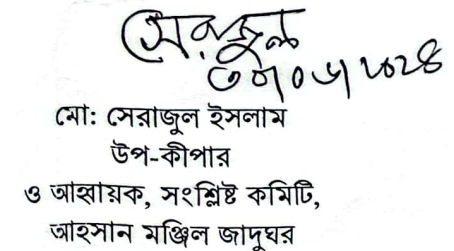 সেরাজুল
৩০/০৬/২০২৪
মো: সেরাজুল ইসলাম
উপ-কীপার
ও আহ্বায়ক, সংশ্লিষ্ট কমিটি,
আহসান মঞ্জিল জাদুঘর